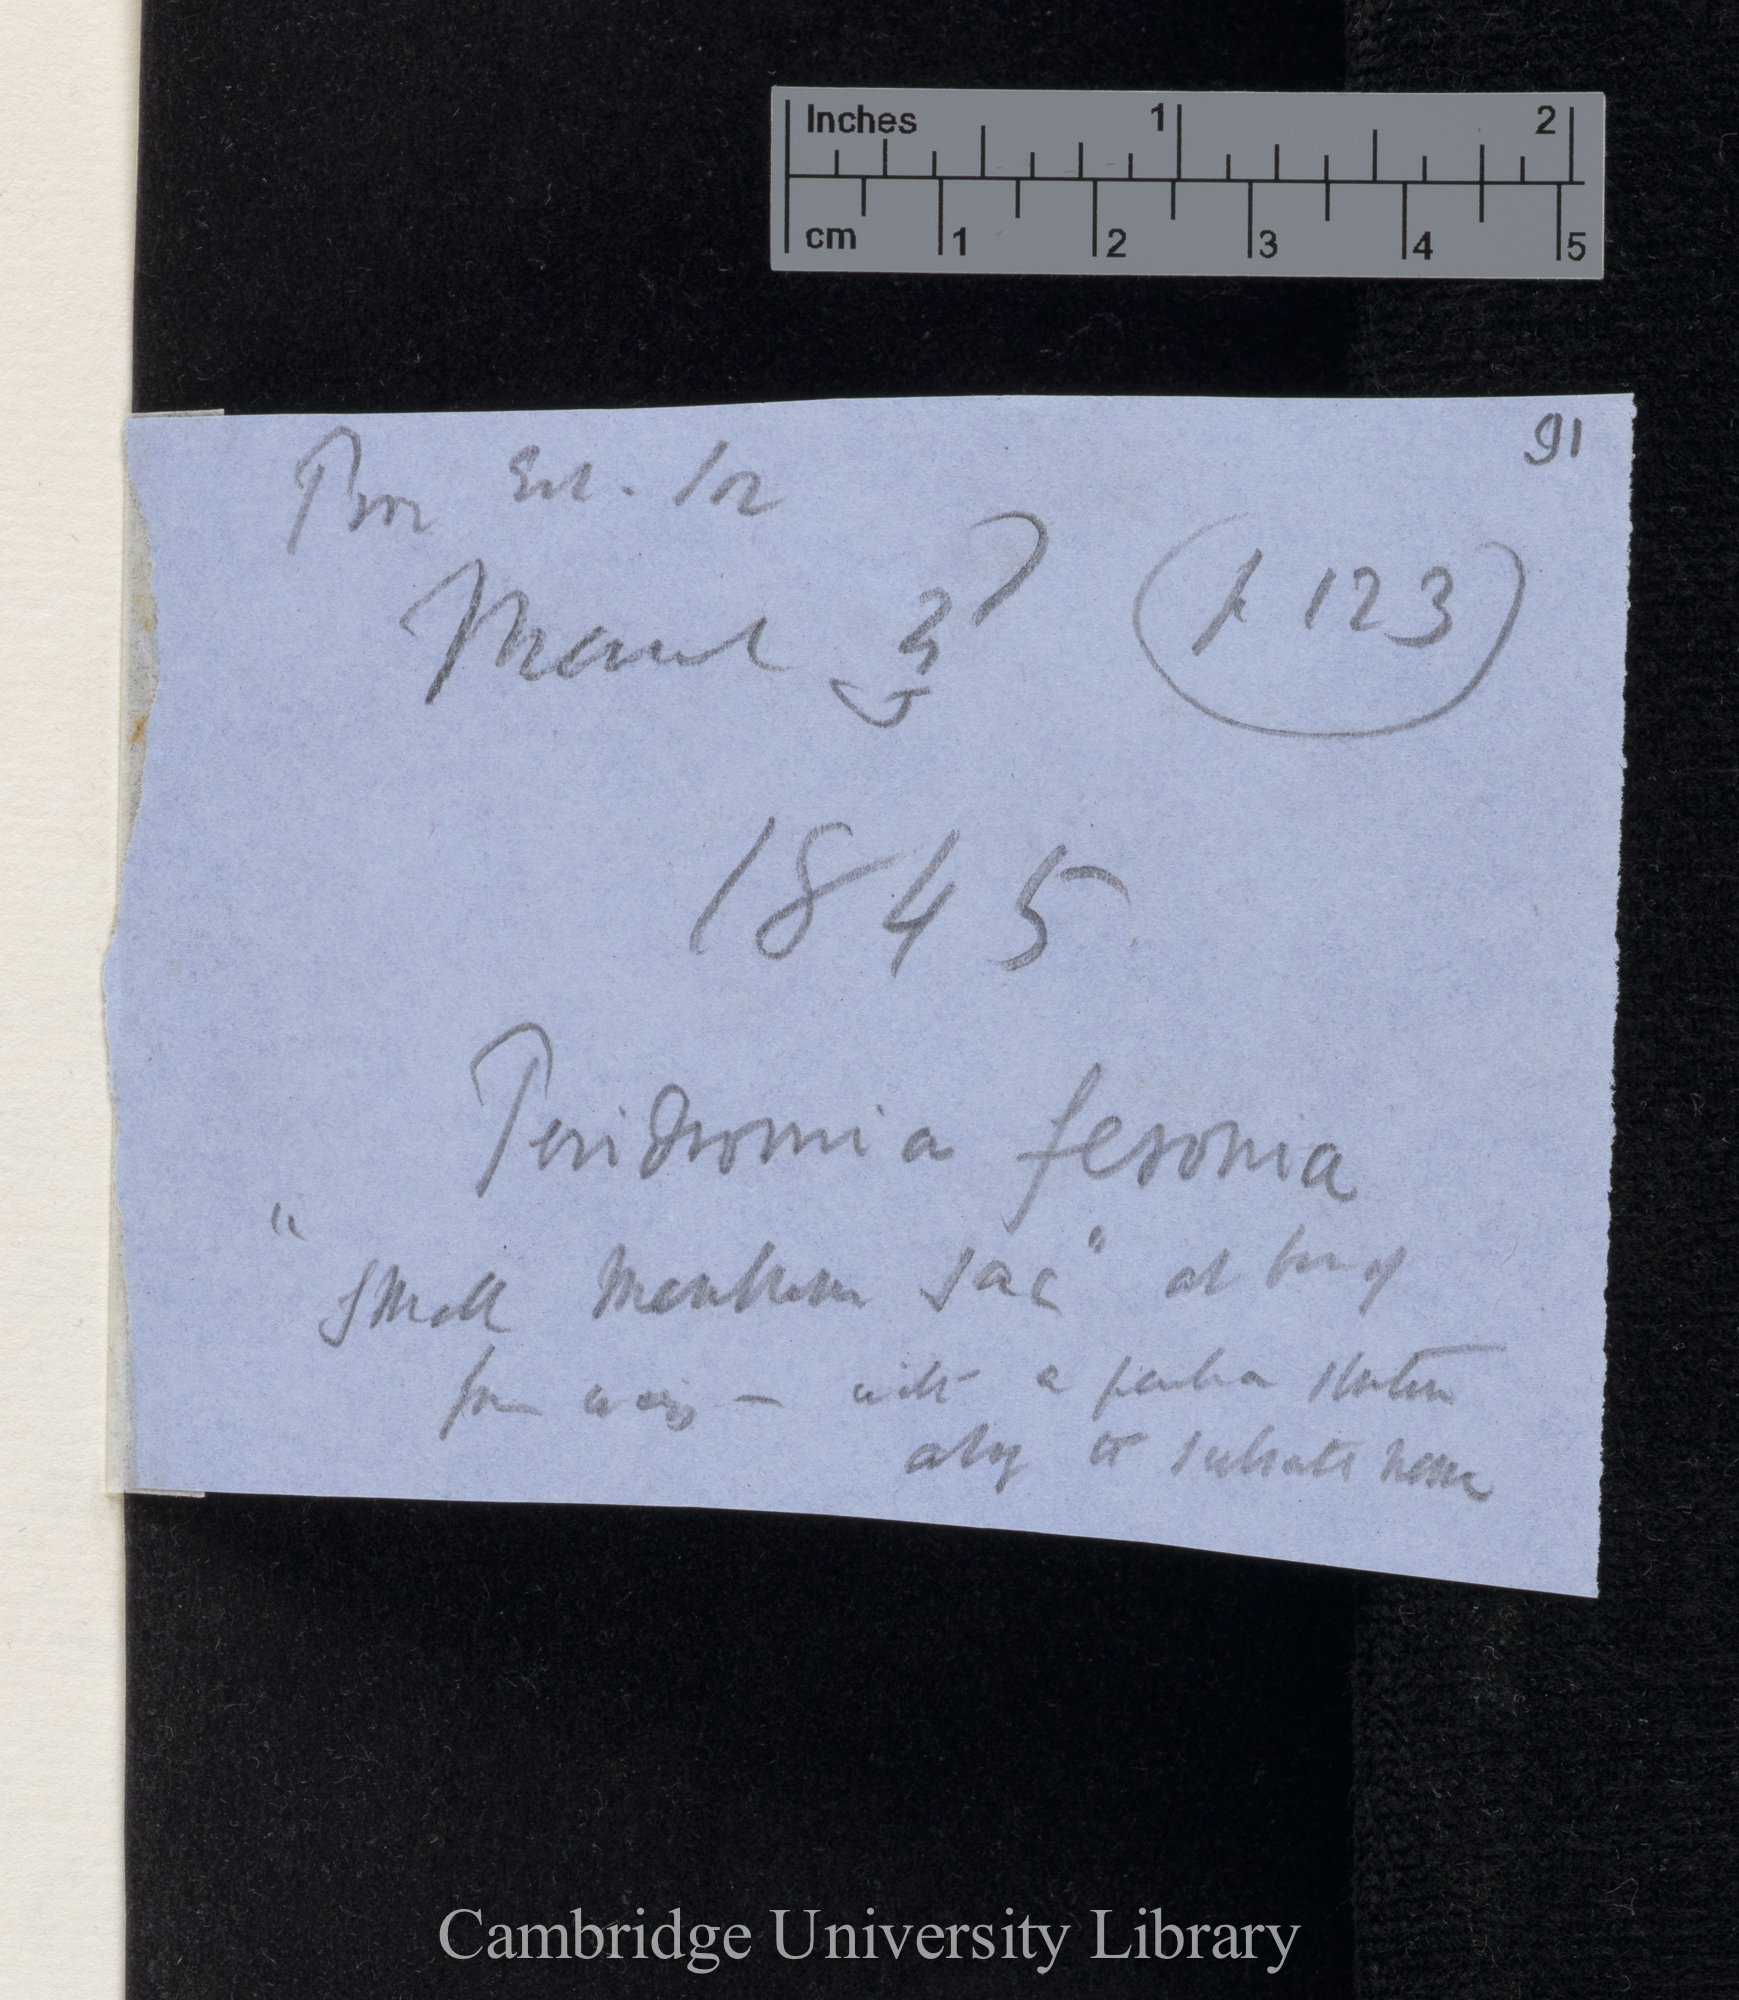 Inches 1 2
cm 1 2 3 4 5
91
Proc Ent. Soc
March 3d (p 123)
1845
Peridromia feronia
"Small membran sac" at base of
fore wings — with a peculiar structure
along the subcostal nerve
Cambridge University Library